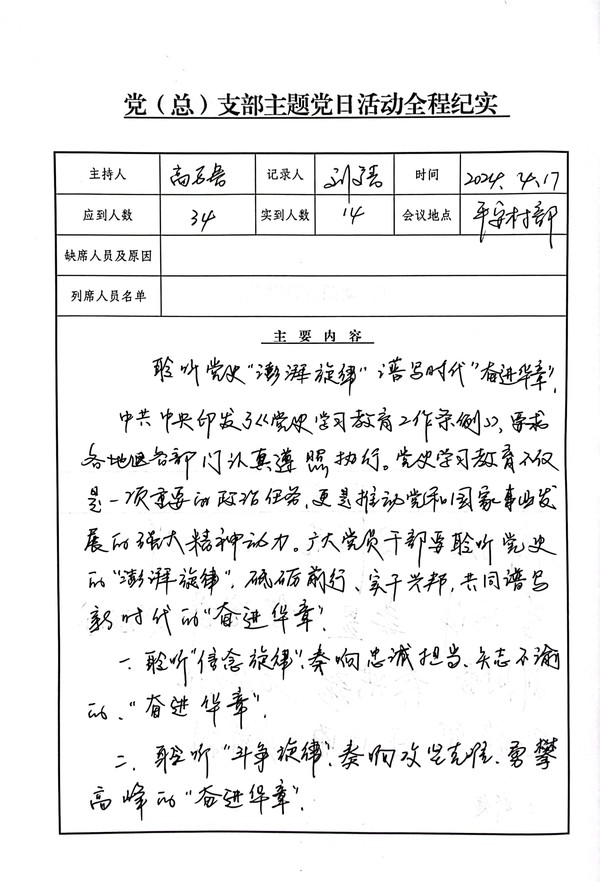 党（总）支部主题党日活动全程纪实
主持人 高 记录人 刘 时间 2024.4.17
应到人数 34 实到人数 14 会议地点 平安村部
缺席人员及原因
列席人员名单
主要内容
聆听党史“澎湃旋律” 谱写时代“奋进华章”.
中共中央印发了《党史学习教育工作条例》，要求
各地区各部门认真遵照执行。党史学习教育不仅
是一项重要的政治任务，更是推动党和国家事业发
展的强大精神动力。广大党员干部要聆听党史
的“澎湃旋律”，砥砺前行、实干兴邦，共同谱写
新时代的“奋进华章”.
一、聆听“信念旋律”，奏响忠诚担当、矢志不渝
的、“奋进华章”.
二、聆听“斗争旋律”，奏响攻坚克难、勇攀
高峰的“奋进华章”.